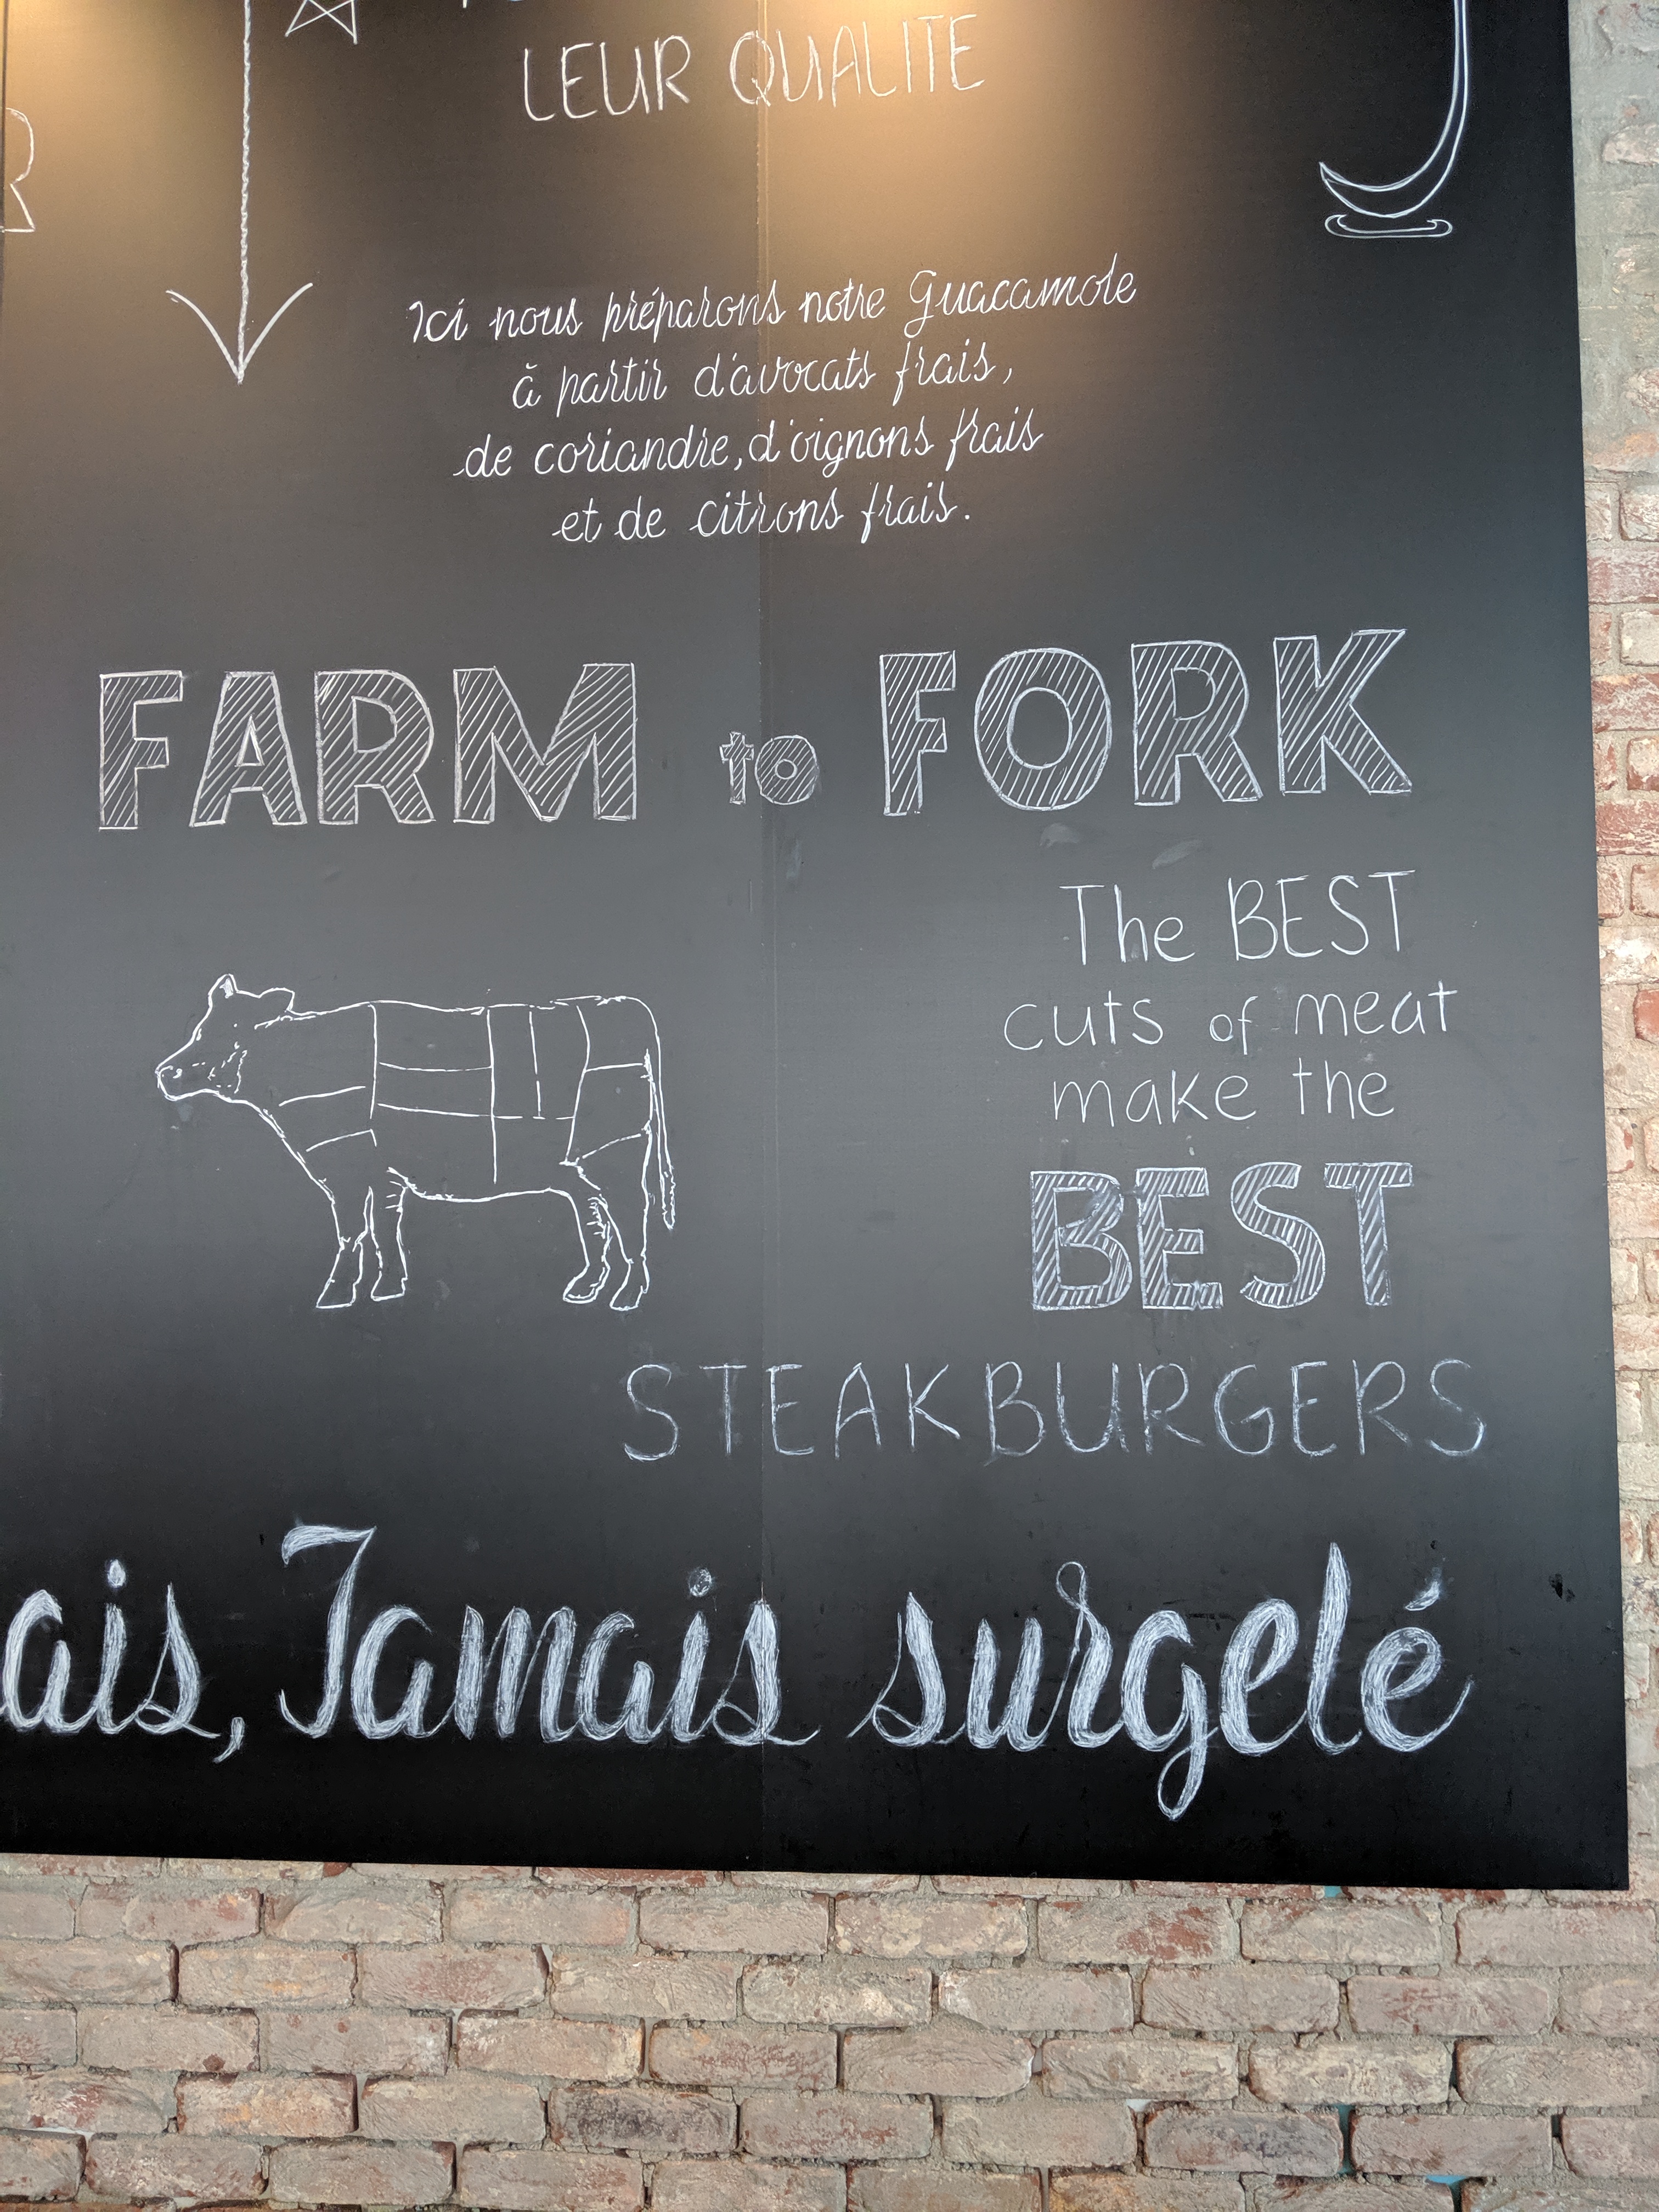 LEUR QUALITE
Ici nous préparons notre Guacamole
à partir d'avocats frais,
de coriandre, d'oignons frais
et de citrons frais.
FARM to FORK
The BEST
cuts of meat
make the
BEST
STEAKBURGERS
ais, Jamais surgelé